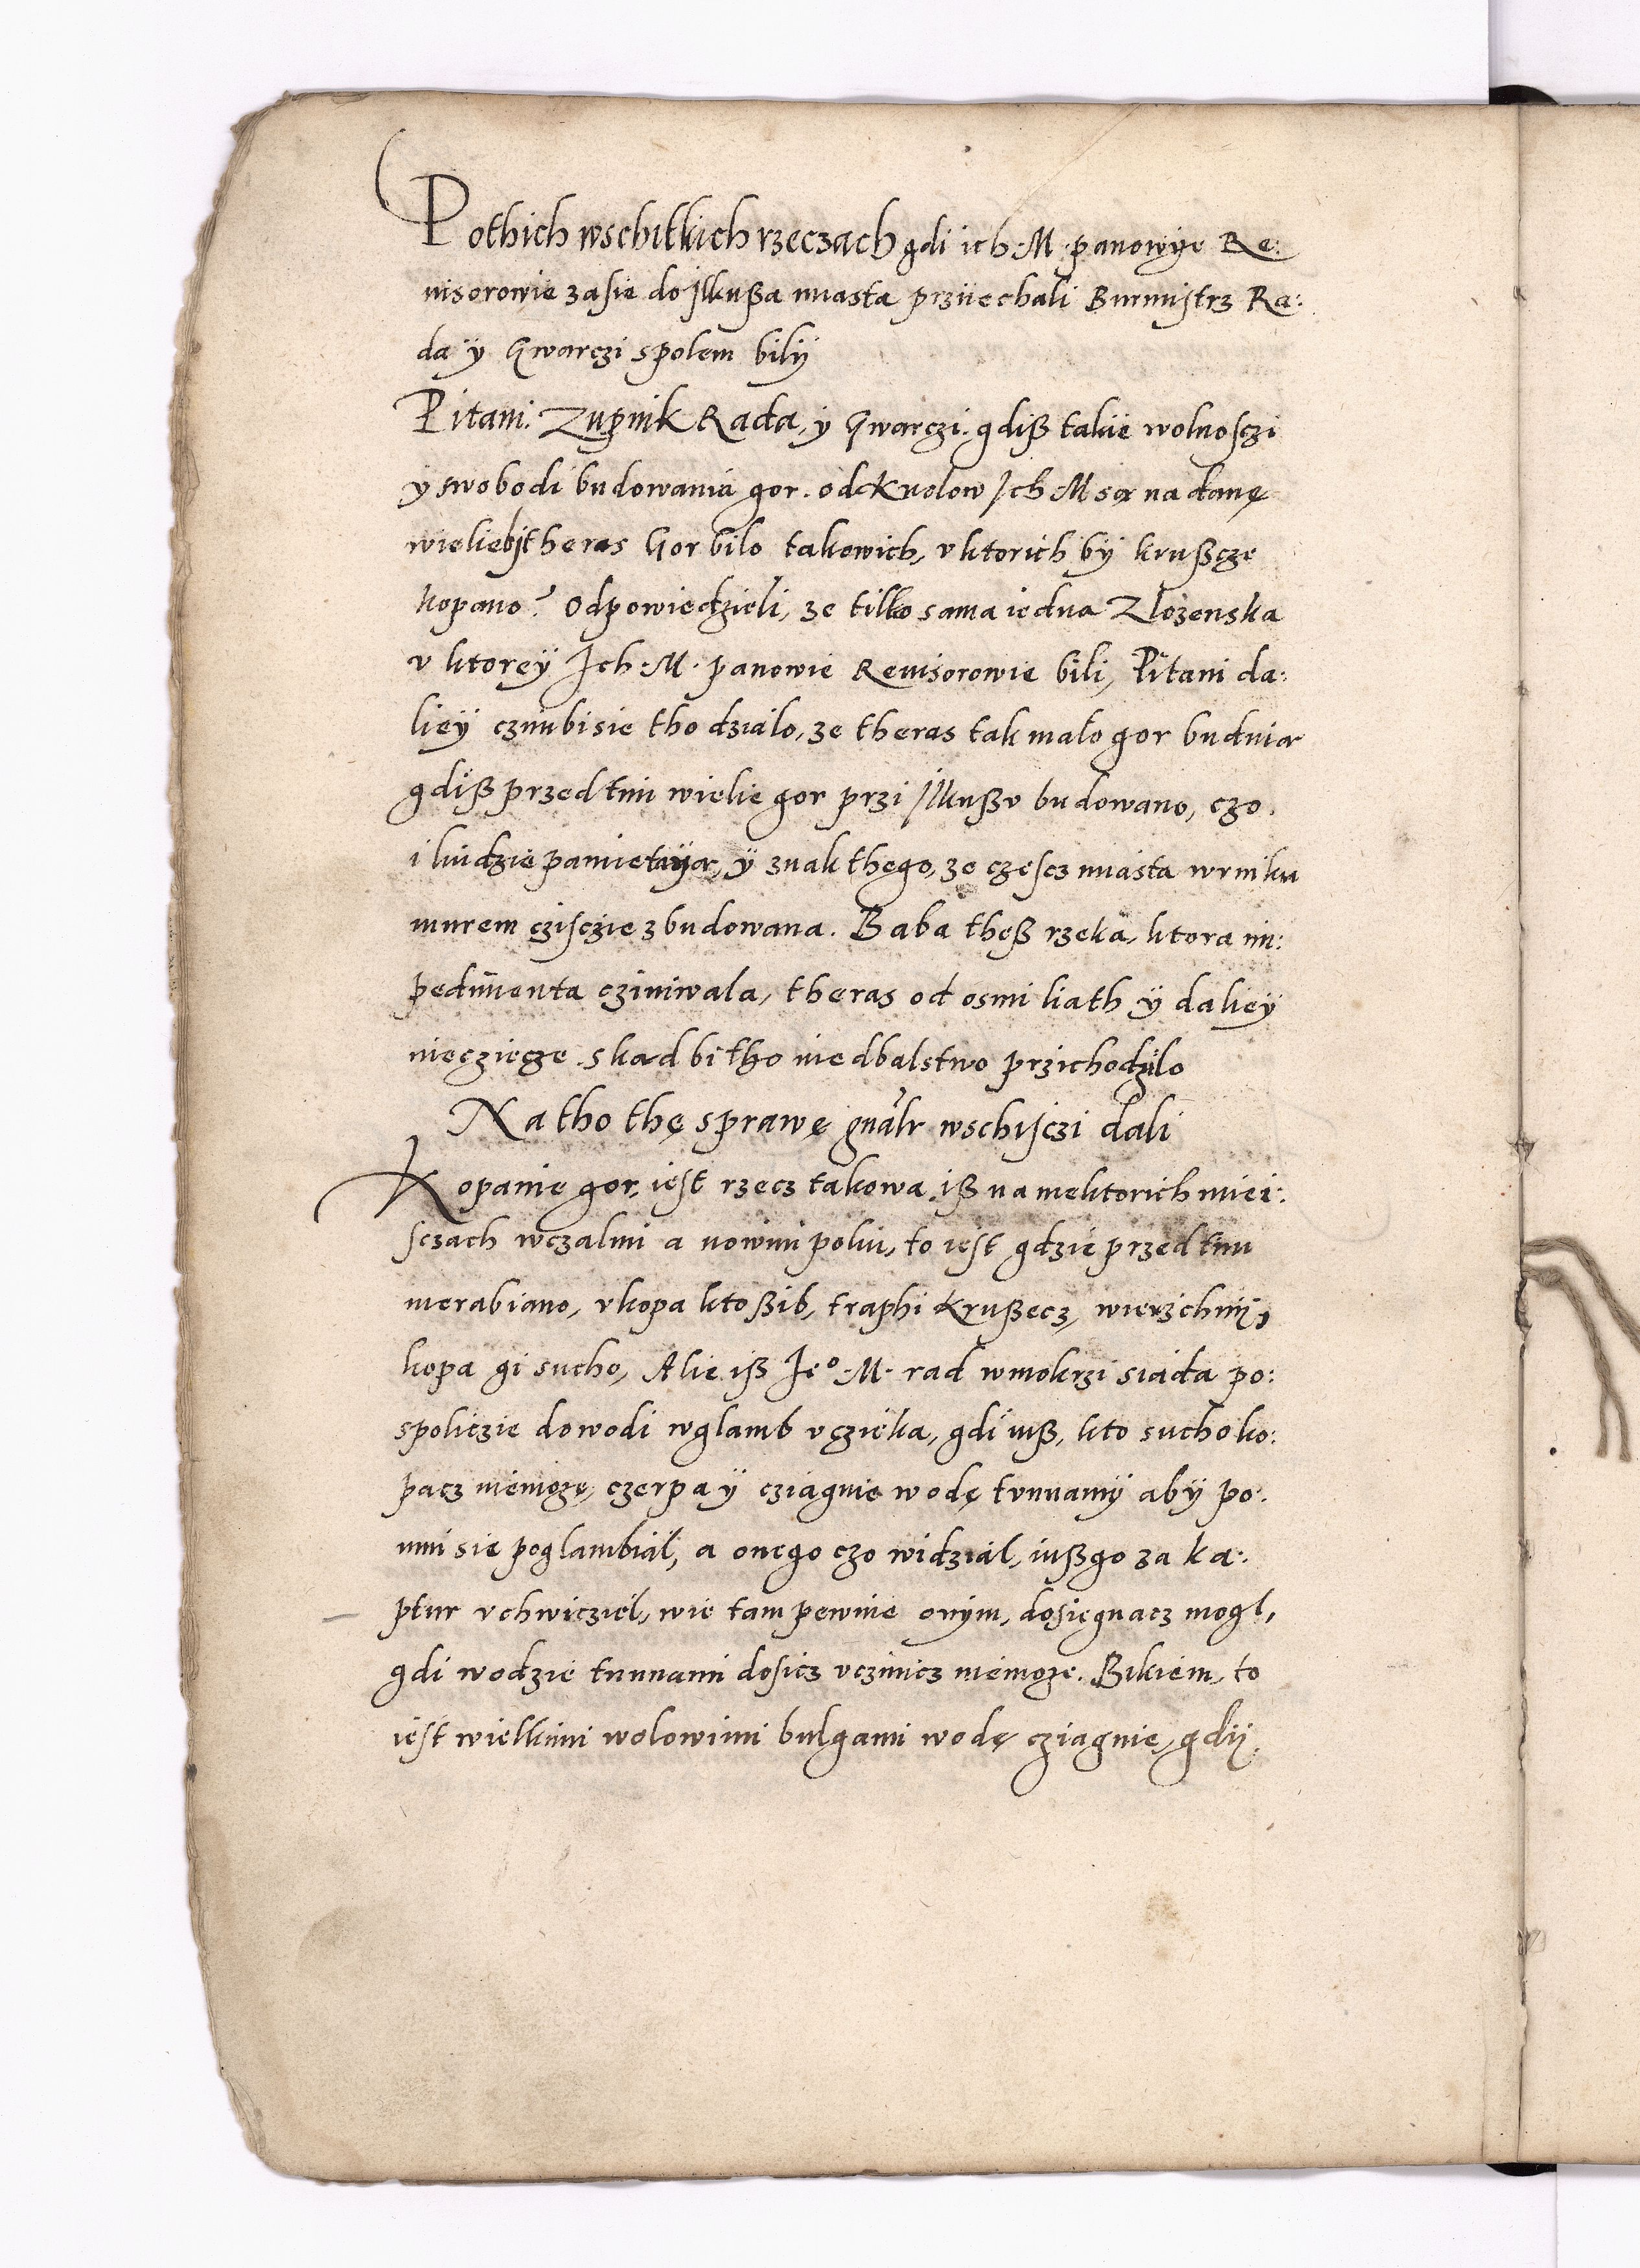 Pothich wschitkich rzeczach gdi ich · M · panowÿe Re:
uisorowie zasie do Ilkußa miasta prziiechali Burmistrz Ra:
da ÿ Gwarczi spolem bilÿ
Pitani. Zupnik Rada, ÿ Gwarczi. gdiß takiie wolnosczi
y swobodi budowania gor. od Krolow Ich M są nadanę
wielie bi theras Gor bilo takowich, v ktorich bÿ krußcze
kopano? Odpowiedzieli, ze tilko sama iedna Zlozenska
v ktoreÿ Ich · M · panowie Reuisorowie bili, Pitani da:
lieÿ czmubi sie tho dzialo, ze theras tak malo gor buduią
gdiß przed tim wielie gor przi Ilkußv budowano, czo
i liudzie pamietaÿą, ÿ znak thego, ze czescz miasta w rinku
murem cziſczie zbudowana. Baba theß rzeka, ktora im:
pedimenta cziniwala, theras od osmi liath ÿ dalieÿ
niecziecze. skąd bi tho niedbalstwo przichodzilo
Na tho thę sprawę gnalr wschisczi dali
Kopanie gor, iest rzecz takowa, iß na niektorich miei:
sczach wczalmi a nowim poliu, to iest gdzie przed tim
nierabiano, vkopa kto ßib, traphi Krußecz, wierzchniÿ,
kopa gi sucho, Alie iß Ieº · M · rad w mokrzi siada po:
spoliczie do wodi wglamb vczieka, gdi iuß, kto sucho ko:
pacz niemozę, czerpa ÿ cziągnie wodę tvnnamÿ abÿ po:
nim sie poglambial, a onego czo widzial, iuß go za ka:
ptur vchwicziel, wie tam pewnie onÿm, dosięgnacz mogl,
gdi wodzie tunnami dosicz vczinicz niemoze. Bikiem, to
iest wielkimi wolowimi bulgami wodę cziągnie, gdÿ